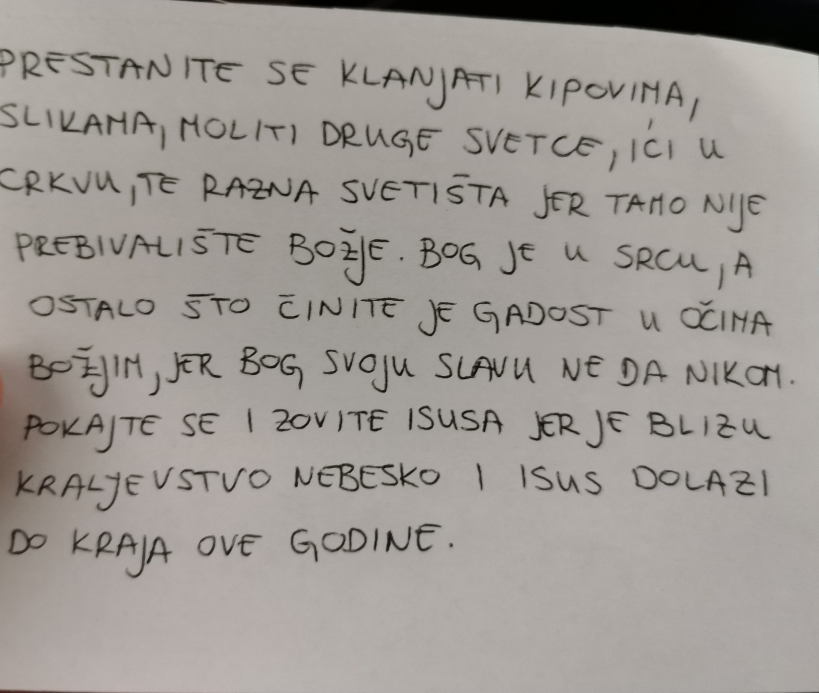 PRESTANITE SE KLANJATI KIPOVIMA,
SLIKAMA, MOLITI DRUGE SVETCE, IĆI U
CRKVU, TE RAZNA SVETIŠTA JER TAMO NIJE
PREBIVALIŠTE BOŽJE. BOG JE U SRCU, A
OSTALO ŠTO ČINITE JE GADOST U OČIMA
BOŽJIM, JER BOG SVOJU SLAVU NE DA NIKOM.
POKAJTE SE I ZOVITE ISUSA JER JE BLIZU
KRALJEVSTVO NEBESKO I ISUS DOLAZI
DO KRAJA OVE GODINE.